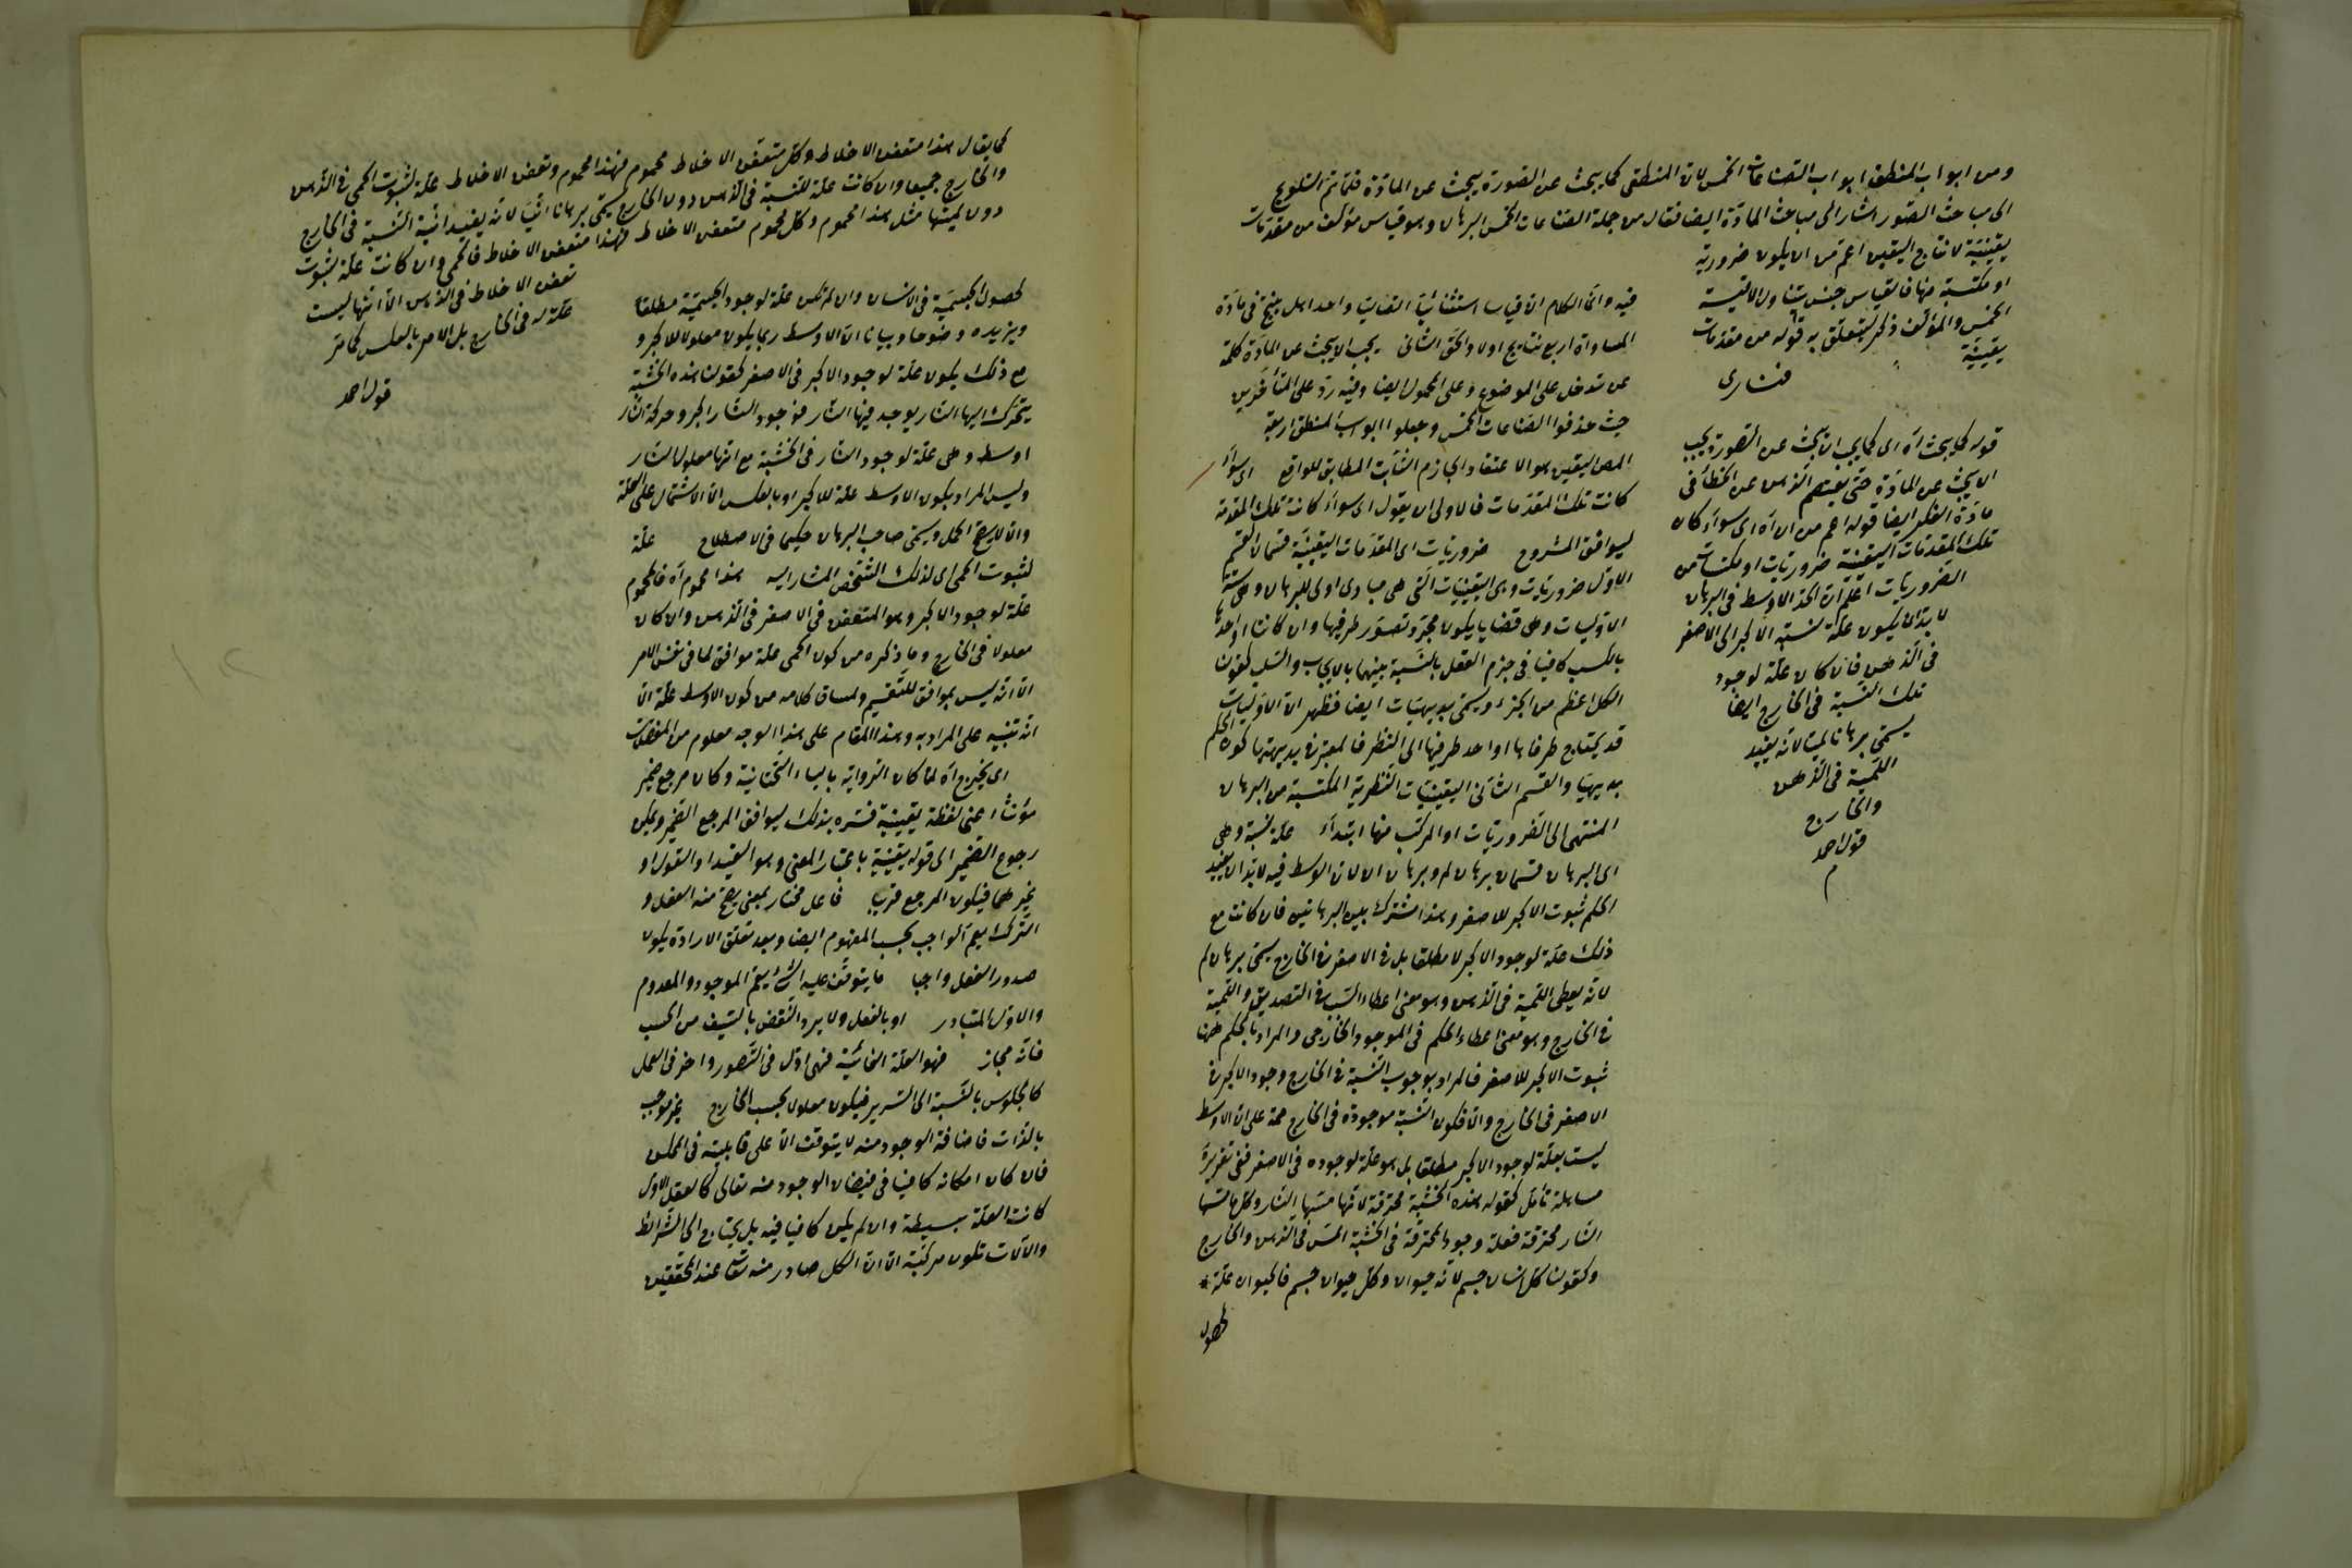 ومن ابواب المنطق ابواب الصناعات الخمس لان المنطقى كما يبحث عن الصورة يبحث عن المادة فلما تم
الى مباحث الصور اشار الى مباحث المادة ايضا فقال من جملة الصناعات الخمس البرهان وهو قياس مؤلف من مقدمات
يقينية لانتاج اليقين اعم من ان يكون ضرورية
او مكتسبة منها فالقياس جنس يتناول الاقيسة
الخمس والمؤلف ذكر ليتعلق به قوله من مقدمات
يقينية
فنارى
قوله كما يبحث آه اى كما يجب ان يبحث عن الصورة يجب
ان يبحث عن المادة حتى يعتصم الذهن عن الخطأ فى
مادة الفكر ايضا قوله اعم من ان آه اى سواء كان
تلك المقدمات اليقينية ضروريات او مكتسبات من
الضروريات اعلم ان الحد الاوسط فى البرهان
لا بد ان يكون علة لنسبة الاكبر الى الاصغر
فى الذهن فان كان علة لوجود
تلك النسبة فى الخارج ايضا
يسمى برهانا لميا لانه يفيد
اللمية فى الذهن
والخارج
قول احمد
م
فيه وانما الكلام ان قياسا استثنائيا اتفاقيا واحدا هل ينتج فى مادة
المساواة اربع نتايج اولا والحق الثانى يجب ان يبحث عن المادة كلمة
عن تدخل على الموضوع وعلى المحمول ايضا وفيه رد على المتأخرين
حيث حذفوا الصناعات الخمس وجعلوا ابواب المنطق اربعة
اليقين هو الاعتقاد الجازم الثابت المطابق للواقع اى سواء
كانت تلك المقدمات فالاولى ان يقول اى سواء كانت تلك المقدمة
ليوافق المشروح ضروريات اى المقدمات اليقينية قسمان القسم
الاول ضروريات وهى اليقينيات التى هى مبادى اولى للبرهان وهى ستة
الاوليات وهى قضايا يكون مجرد تصور طرفيها وان كانا او احدهما
بالكسب كافيا فى جزم العقل بالنسبة بينهما بالايجاب والسلب كقولنا
الكل اعظم من الجزء ويسمى بديهيات ايضا فظهر ان الاوليات
قد يحتاج طرفاها او احد طرفيها الى النظر فالمعتبر فى بديهيتها كون الحكم
بديهيا والقسم الثانى اليقينيات النظرية المكتسبة من البرهان
المنتهى الى الضروريات او المركب منها ابتداء علة لنسبة وهى
اى البرهان قسمان برهان لم وبرهان ان لان الوسط فيه لا بد ان يفيد
الحكم ثبوت الاكبر للاصغر وهذا مشترك بين البرهانين فان كانت مع
ذلك علة لوجود الاكبر لا مطلقا بل فى الاصغر فى الخارج يسمى برهان لم
لانه يعطى اللمية فى الذهن وهو معنى اعطاء السبب فى التصديق واللمية
فى الخارج وهو معنى اعطاء الحكم فى الموجود الخارجى والمراد بالحكم ههنا
ثبوت الاكبر للاصغر فالمراد بوجوب النسبة فى الخارج وجود الاكبر فى
الاصغر فى الخارج والا فكون النسبة موجودة فى الخارج محة على ان الاوسط
ليست بعلة لوجود الاكبر مطلقا بل هو علة لوجوده فى الاصغر ففى تقريره
مساهلة تأمل كقوله هذه الخشبة محترقة لانها مستها النار وكل ما مستها
النار محترقة فعلة وجود المحترقة فى الخشبة المس فى الذهن والخارج
وكقولنا كل انسان جسم لانه حيوان وكل حيوان جسم فالحيوان علة
لحصول
كما يقال هذا متعفن الاخلاط وكل متعفن الاخلاط محموم فهذا محموم وتعفن الاخلاط علة لثبوت الحمى فى الذهن
والخارج جميعا وان كانت علة للنسبة فى الذهن دون الخارج يسمى برهانا انيا لانه يفيد انية النسبة فى الخارج
دون لميتها مثل هذا محموم وكل محموم متعفن الاخلاط فهذا متعفن الاخلاط فالحمى وان كانت علة لثبوت
تعفن الاخلاط فى الذهن الا انها ليست
علة له فى الخارج بل الامر بالعكس كما مر
قول احمد
لحصول الجسمية فى الانسان وان لم تكن علة لوجود الجسمية مطلقا
ويزيده وضوحا وبيانا ان الاوسط ربما يكون معلولا للاكبر و
مع ذلك يكون علة لوجود الاكبر فى الاصغر كقولنا هذه الخشبة
يتحرك اليها النار يوجد فيها النار فوجود النار اكبر وحركة النار
اوسط وهى علة لوجود النار فى الخشبة مع انها معلول النار
وليس المراد بكون الاوسط علة للاكبر او بالعكس الا الاشتمال على العلة
والا لا يصح الحمل ويسمى صاحب البرهان حكيما فى الاصطلاح علة
لثبوت الحمى اى لذلك الشخص المشار اليه هذا محموم آه فالمحموم
علة لوجود الاكبر وهو المتعفن فى الاصغر فى الذهن وان كان
معلولا فى الخارج وما ذكره من كون الحمى علة موافق لما فى نفس الامر
الا انه ليس بموافق للتقسيم ولمساق كلامه من كون الاوسط علة الا
انه تنبيه على المراد به وهذا المقام على هذا الوجه معلوم من المفصلات
اى يخرج آه لما كان الرواية بالياء التحتانية وكان مرجع ضمير
مؤنثا اعنى لفظة يقينية فسره بذلك ليوافق المرجع الضمير ويمكن
رجوع الضمير الى قوله يقينية باعتبار المعنى وهو القيد او القول او
غيرهما فيكون المرجع قريبا فاعل مختار بمعنى يصح منه الفعل و
الترك يعم الواجب بحسب المفهوم ايضا وبعد تعلق الارادة يكون
صدور الفعل واجبا ما يتوقف عليه الشئ يعم الموجود والمعدوم
والاول المتبادر او بالفعل ولا يرد النقض بالسيف من الخشب
فانه مجاز فهو العلة الغائية فهى اول فى التصور واخر فى العمل
كالجلوس بالنسبة الى السرير فيكون معلولا بحسب الخارج غير موجب
بالذات فاضافة الوجود منه لا يتوقف الا على قابلية فى الممكن
فان كان امكانه كافيا فى فيضان الوجود منه تعالى كالعقل الاول
كانت العلة بسيطة وان لم يكن كافيا فيه بل يحتاج الى الشرائط
والآلات تكون مركبة الا ان الكل صادر منه تعالى عند المحققين